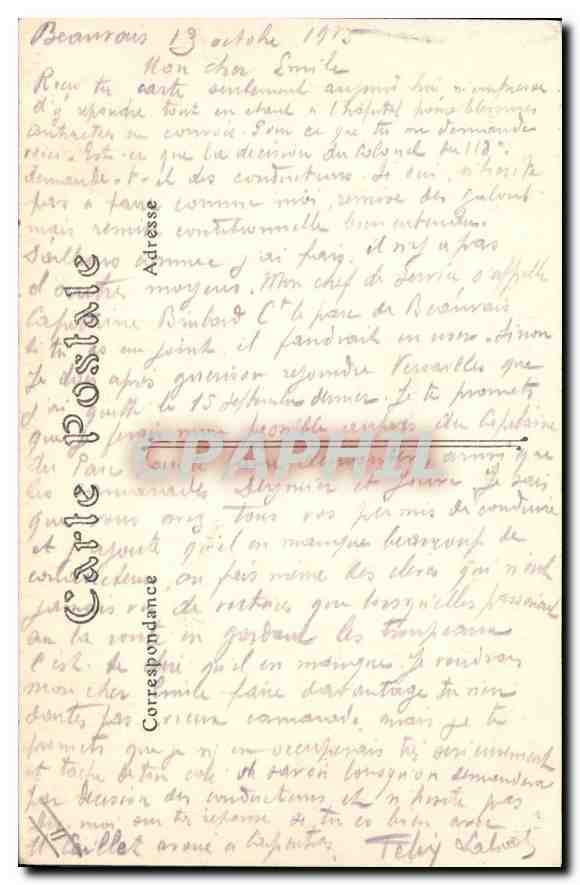 Beauvais 13 octobre 1915
Mon cher Emile
Reçu ta carte seulement aujourd'hui m'empresse
d'y répondre tout en étant à l'hôpital pour blessures
contractées en convoi. Pour ce que tu me demandes
voici. Est-ce que la décision du Colonel du 118e
demande-t-il des conducteurs. Si oui, n'hésite
pas à faire comme moi, remise des galons
mais remise conditionnelle bien entendu.
D'ailleurs comme j'ai fais. il n'y a pas
d'autres moyens. Mon chef de service s'appelle
Capitaine Ct le parc de Beauvais
Si tu es il faudrait Sinon
Je dois après guérison rejoindre Versailles que
j'ai quitté le 15 septembre dernier. Je te promets
que je ferai mon possible auprès du Capitaine
du Parc ainsi que
les camarades et Je sais
que vous avez tous vos permis de conduire
et j'ajoute qu'il en manque beaucoup de
conducteurs, on fais même des élèves qui n'ont
jamais vu de voitures que lorsqu'elles passaient
sur la route en gardant les troupeaux
C'est te dire qu'il en manque. Je voudrais
mon cher Emile faire davantage tu n'en
doutes pas vieux camarade mais je te
promets que je m'en occuperais très sérieusement
et tache de ton côté de savoir lorsqu'on demandera
par décision des conducteurs et n'hésite pas
moi sur ta réponse si tu es bien avec
Caillet avoué à Félix
Carte Postale
Adresse
Correspondance
CPAPHIL
11